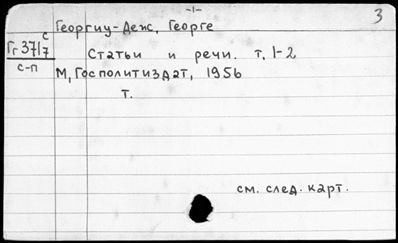 -1-
3
Георгиу-Деж, Георге
Гг 371/7 с
с-п
Статьи и речи. т. 1-2
М, Госполитиздат, 1956
т.
см. след. карт.